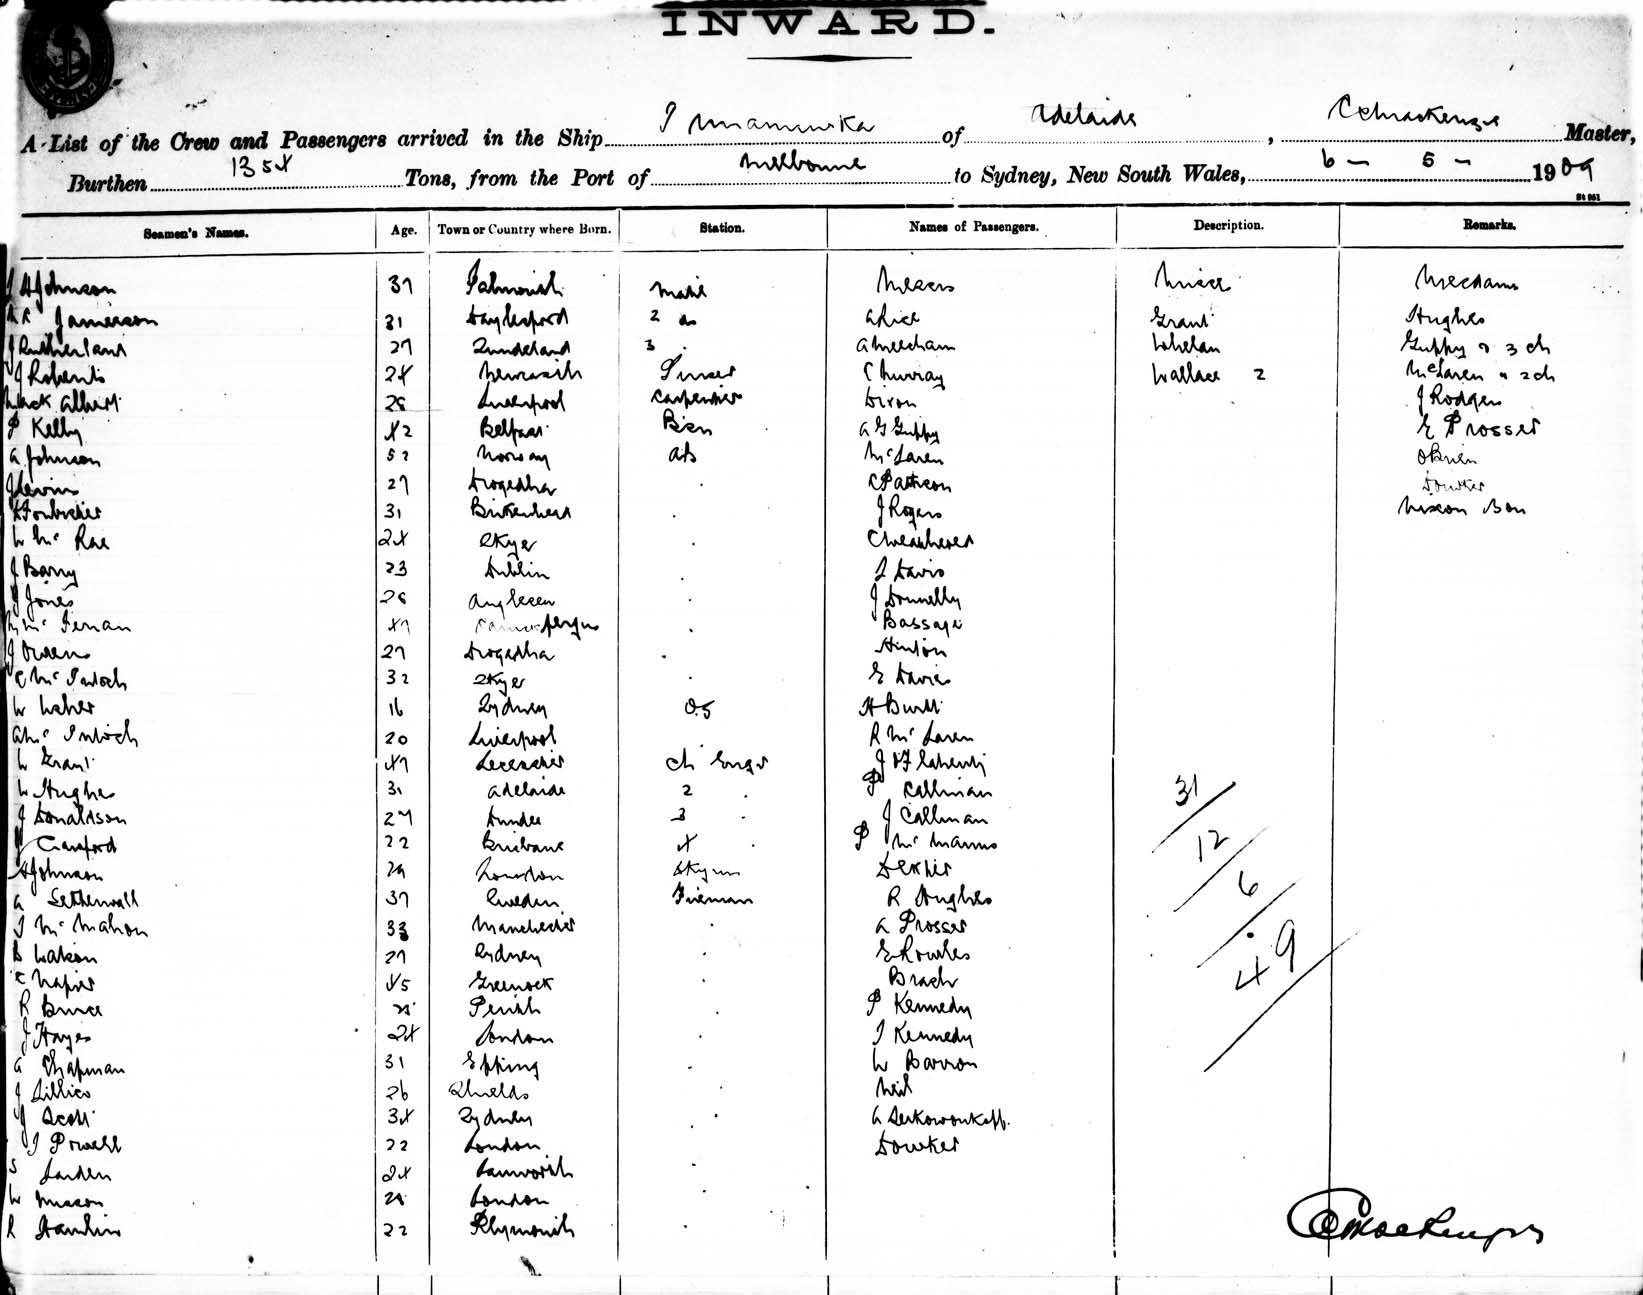 INWARD.
A List of the Crew and Passengers arrived in the Ship Innamincka of Adelaide, C McKenzie Master,
Burthen 1354 Tons, from the Port of Melbourne to Sydney, New South Wales, 6 - 5 - 1909
St 961
Seamen's Names. Age. Town or Country where Born. Station. Names of Passengers. Description. Remarks.
H Johnson 37 Falmouth Mate Messrs Misses Mesdams
Jamieson 31 Daylesford 2 do A Rice Grant Hughes
J Rutherland 27 Sunderland 3 . A Meecham Whelan Guppy & 3 ch
J Roberts 24 Newcastle Purser C Murray Wallace 2 McLaren " 2 ch
Mack Albert 28 Liverpool Carpenter Dixon J Rodgers
P Kelly 42 Belfast Bsn A G Guppy E Prosser
A Johnson 52 Norway AB McLaren OBrien
J Levins 27 Drogedha . C Pattison Dowker
31 Birkenhead . J Rogers Nixon Bon
W Mc Rae 24 Skye .
J Barry 23 Dublin . Davis
Jones 28 Anglesea . J Donnelly
Mc Fernan 47 . Bassage
J Owens 27 Drogedha . Hinton
C Mc Intosh 32 Skye . E Davies
W Usher 16 Sydney OS H Burtt
A Mc Intosh 20 Liverpool R Mc Laren
W Grant 47 Leicester Ch Engr J OFlaherty
W Hughes 31 Adelaide 2 . P Callinan 31
J Donaldson 27 Dundee 3 . J Callinan
Crawford 22 Brisbane 4 . P Mc Manus 12
H Johnson 29 London Dkyman Dexter
A 37 Sweden Fireman R Hughes 6
T Mc Mahon 33 Manchester . A Prosser
Watson 27 Sydney . E Rowles 49
C Napier 45 Greenock . Brach
R Bruce 25 Perth . P Kennedy
J Hayes 24 London . T Kennedy
A Chapman 31 Epping . W Barron
J Lillico 26 Shields . Neil
J Scott 34 Sydney . A
J Powell 22 London . Dowker
S Larden 24 Tamworth .
W Musson 28 London .
R Hamlin 22 Plymouth .
C McKenzie